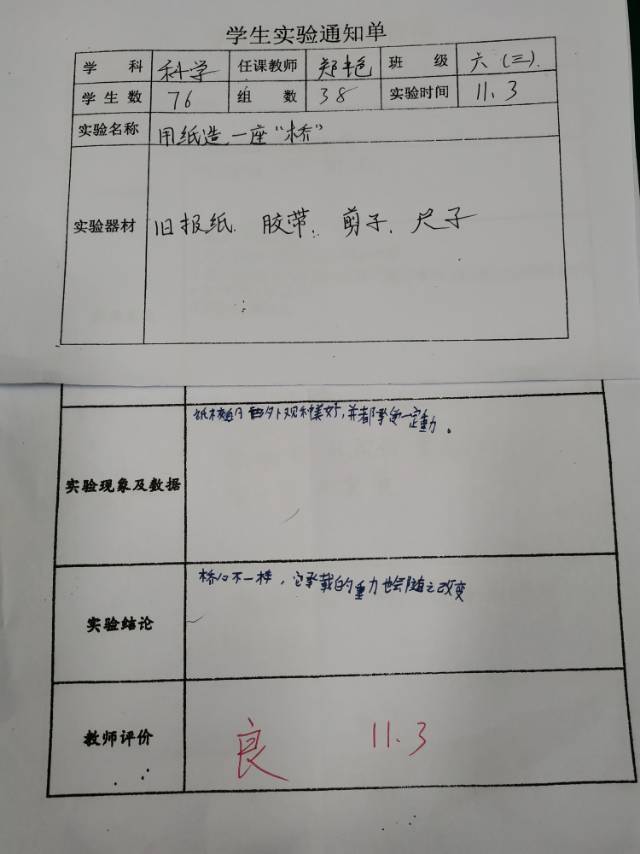 学生实验通知单
学 科 科学 任课教师 郑艳 班 级 六（三）.
学生数 76 组 数 38 实验时间 11.3
实验名称 用纸造一座“桥”
实验器材 旧报纸. 胶带. 剪子. 尺子
外观和美好,并都承受一定重力。
实验现象及数据
不一样，它承载的重力也会随之改变
实验结论
教师评价 良 11.3